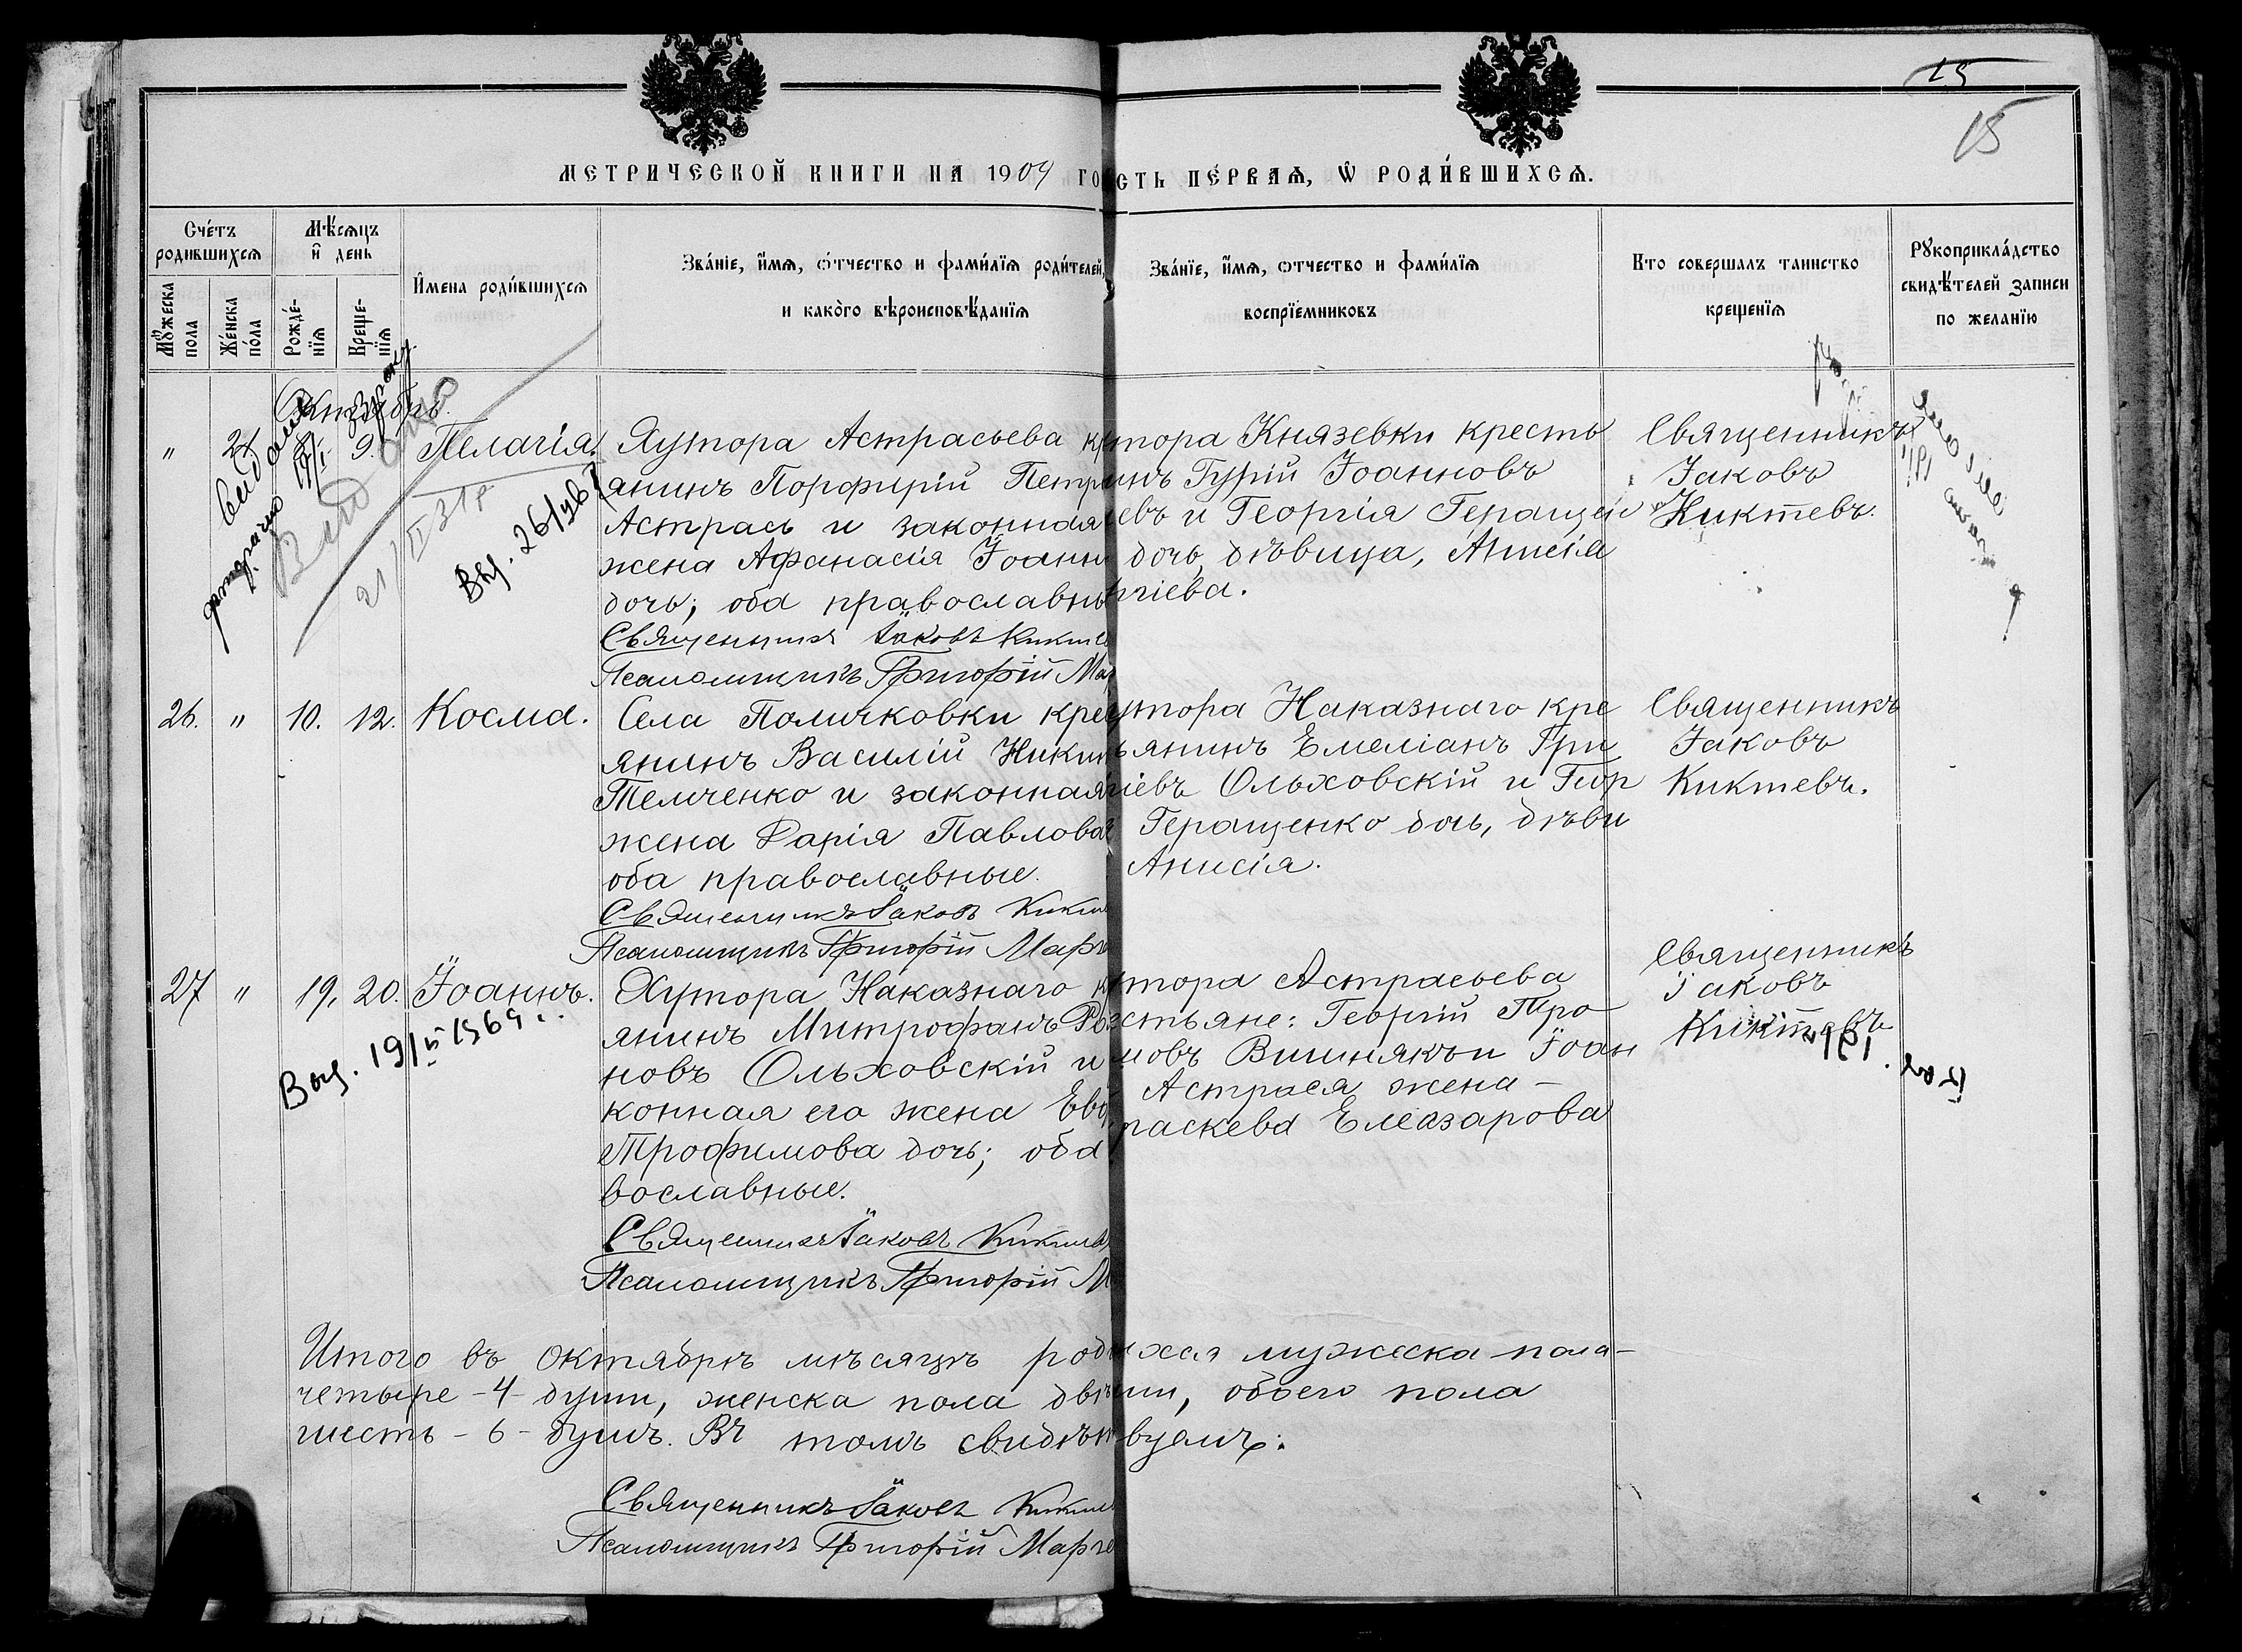 15
15
МЕТРИЧЕСКОЙ КНИГИ НА 1904 ГО
СТЬ ПЕ́РВАѦ, Ѡ҆ РОДИ́ВШИХСѦ.
Сче́тъ родившихсѧ
Мꙋ́жеска пола
Же́нска по́ла
Мѣ́сѧцъ и҆ день
Рожде́нїѧ
Креще́нїѧ
И҆мена роди́вшихсѧ
Зва́нїе, и҆́мѧ, ѻ҆́тчество и фами́лїѧ роди́телей,
и како́го вѣроисповѣ́данїѧ
Зва́нїе, и҆́мѧ, ѻтчество и фами́лїѧ
воспрїе́мниковъ
Кто совершалъ таинство
креще́нїѧ
Рꙋкоприкла́дство
свидѣ́телей записи
по желанїю
Октябрь.
" 9. Пелагія.
Хутора Астрасьева к
янинъ Порфирій Петр
Астрась и законная
жена Афанасія Іоанн
дочь; оба православны
Священникъ Іаковъ Киктев
Псаломщикъ Григорій Мар
тора Князевки кресть
инъ Гурій Іоанновъ
евъ и Георгія Геращен
дочь, дѣвица, Анисія
ргіева.
Священникъ
Іаковъ
Киктевъ.
21/II 31 р
26. " 10. 12. Косма.
Села Поличковки кре
янинъ Василій Ники
Теличенко и законная
жена Дарія Павлова
оба православные.
Священникъ Іаковъ Кикт
Псаломщикъ Григорій Марч
утора Наказнаго кре
янинъ Емеліанъ Гри
ріевъ Ольховскій и Геор
Геращенко дочь, дѣви
Анисія.
Священникъ
Іаковъ
Киктевъ.
27 " 19. 20. Іоаннъ.
Выд. 19/II 1969 г.
Хутора Наказнаго к
янинъ Митрофанъ Ро
новъ Ольховскій и
конная его жена Евд
Трофимова дочь; оба
вославные.
Священникъ Іаковъ Киктев
Псаломщикъ Григорій М
тора Астрасьева
стьяне: Георгій Тро
мовъ Вишнякъ и Іоан
Астрася жена –
раскева Елеазарова
Священникъ
Іаковъ
Киктевъ
Итого въ Октябрѣ мѣсяцѣ род
ихся мужеска пола –
четыре – 4 – души, женска пола двѣ
ши, обоего пола
шесть – 6 – душъ. Въ томъ свидѣт
вуемъ:
Священникъ Іаковъ Киктев
Псаломщикъ Григорій Марче